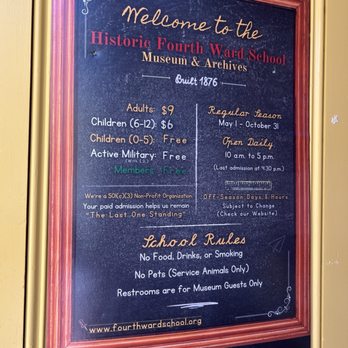 Welcome to the
Historic Fourth Ward School
Museum & Archives
Built 1876
Adults: $9
Children (6-12): $6
Children (0-5): Free
Active Military: Free
Members: Free
We're a 501(c)(3) Non-Profit Organization
Your paid admission helps us remain
"The Last One Standing"
Regular Season
May 1 - October 31
Open Daily
10 a.m. to 5 p.m.
(Last admission at 4:30 p.m.)
Off-Season Days & Hours
Subject to Change
(Check our Website)
School Rules
No Food, Drinks, or Smoking
No Pets (Service Animals Only)
Restrooms are for Museum Guests Only
www.fourthwardschool.org